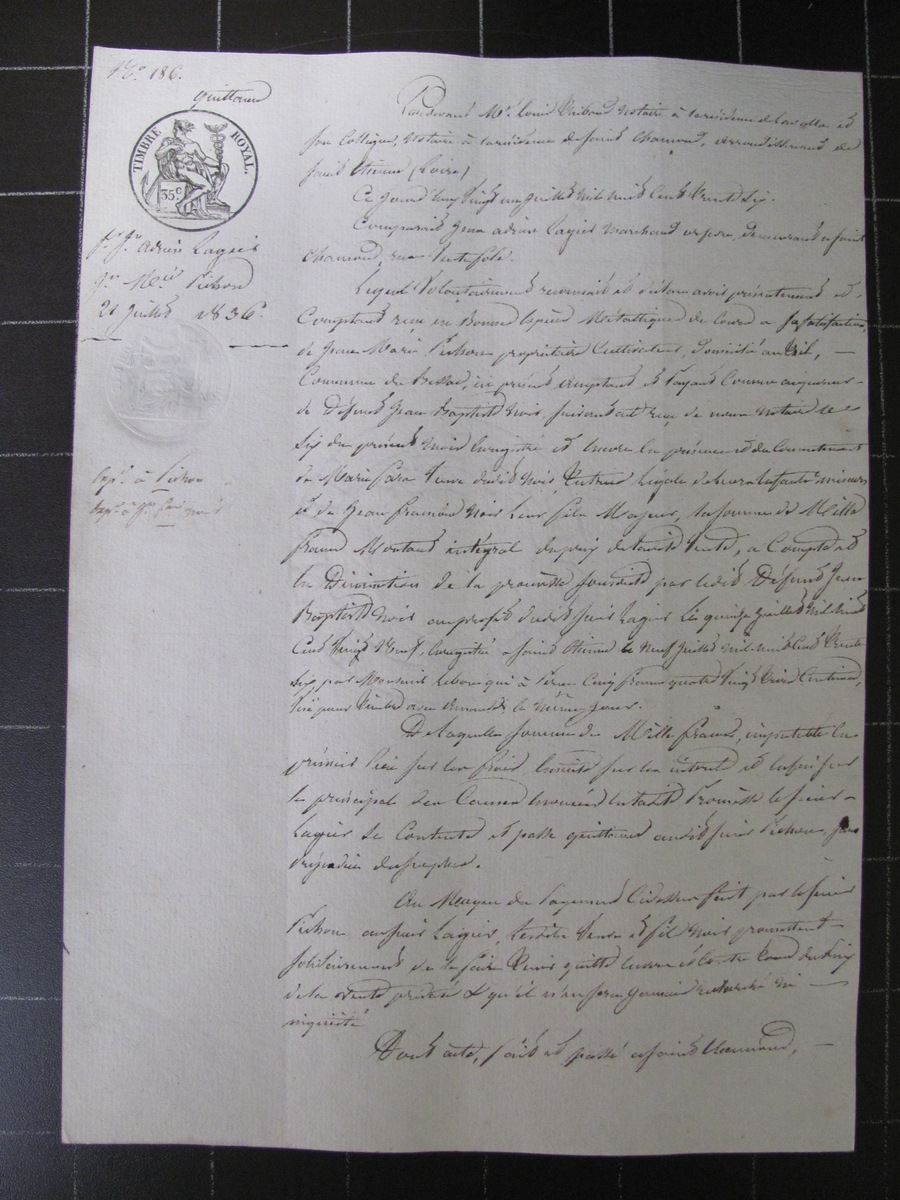 N.o 186.
quittance
TIMBRE ROYAL.
35 C
Jn. Adrien Lagier
Jn. Mie. Pichon
21 juillet 1836.
Exp. à Pichon
Pardevant Me. Louis Thibaud notaire à la résidence de Lavalla et
son Collègue, notaire à la résidence de saint Chamond, arrondissement de
saint Etienne (Loire)
Ce jourd'huy vingt un juillet mil huit cent trente six.
Comparait Jean adrien Lagier marchand, demeurant a saint
Chamond, rue
Lequel volontairement reconnait et déclare avoir présentement et
Comptant reçu en bonnes espèces métalliques de cours a satisfaction,
de Jean Marie Pichon propriétaire Cultivateur, domicilié au
Commune du Bessat, ici présent acceptant et payant comme acquéreur
de Défunt Jean Baptiste noir, suivant acte reçu de nous notaire le
six du présent mois enregistré et encore en présence et du Consentement
de Marie veuve dudit noir, tutrice légale de leurs enfants mineurs
et de Jean françois noir leur fils Majeur, la somme de Mille
francs Montant intégral du prix de ladite vente, a Compte et
en Diminution de la promesse souscrite par ledit Défunt Jean
Baptiste noir au profit dudit sieur Lagier le quinze juillet mil huit
Cent vingt neuf, enregistrée a saint Etienne le neuf juillet mil huit cent trente
six par Monsieur qui à perçu Cinq francs quatre vingt trois Centimes,
visé pour timbre avec amende le même jour.
De laquelle somme de Mille francs, imputable en
premier lieu sur les frais, ensuite sur les intérêts et enfin sur
le principal des Causes énoncées en ladite Promesse le sieur
Lagier se Contente et passe quittance audit sieur Pichon, sans
préjudice du surplus.
Au Moyen du Payement Cidessus fait par le sieur
Pichon au sieur Lagier, lesdits veuve et fils noir promettent
solidairement de le faire tenir quitte envers et contre tous du prix
de la vente précitée & qu'il n'en sera jamais recherché ni
inquiété
Dont acte, fait et passé a saint Chamond,